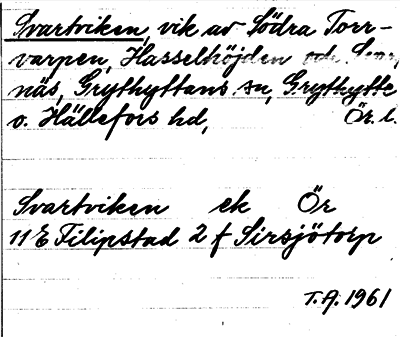 Svartviken, vik av Södra Torr-
varpen, Hasselhöjden och
näs, Grythyttans sn, Grythytte
o. Hällefors hd, Ör. l.
Svartviken ek Ör
11 E Filipstad 2 f Sirsjötorp
T.A. 1961